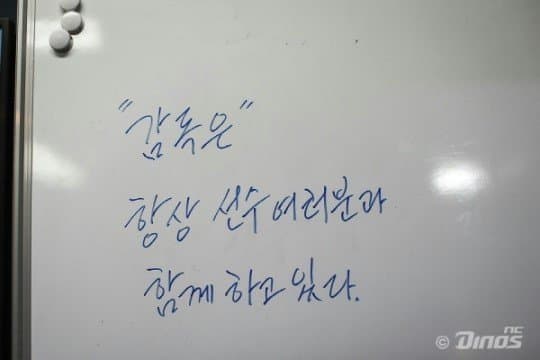 "감독은"
항상 선수 여러분과
함께 하고 있다.
© NC Dinos